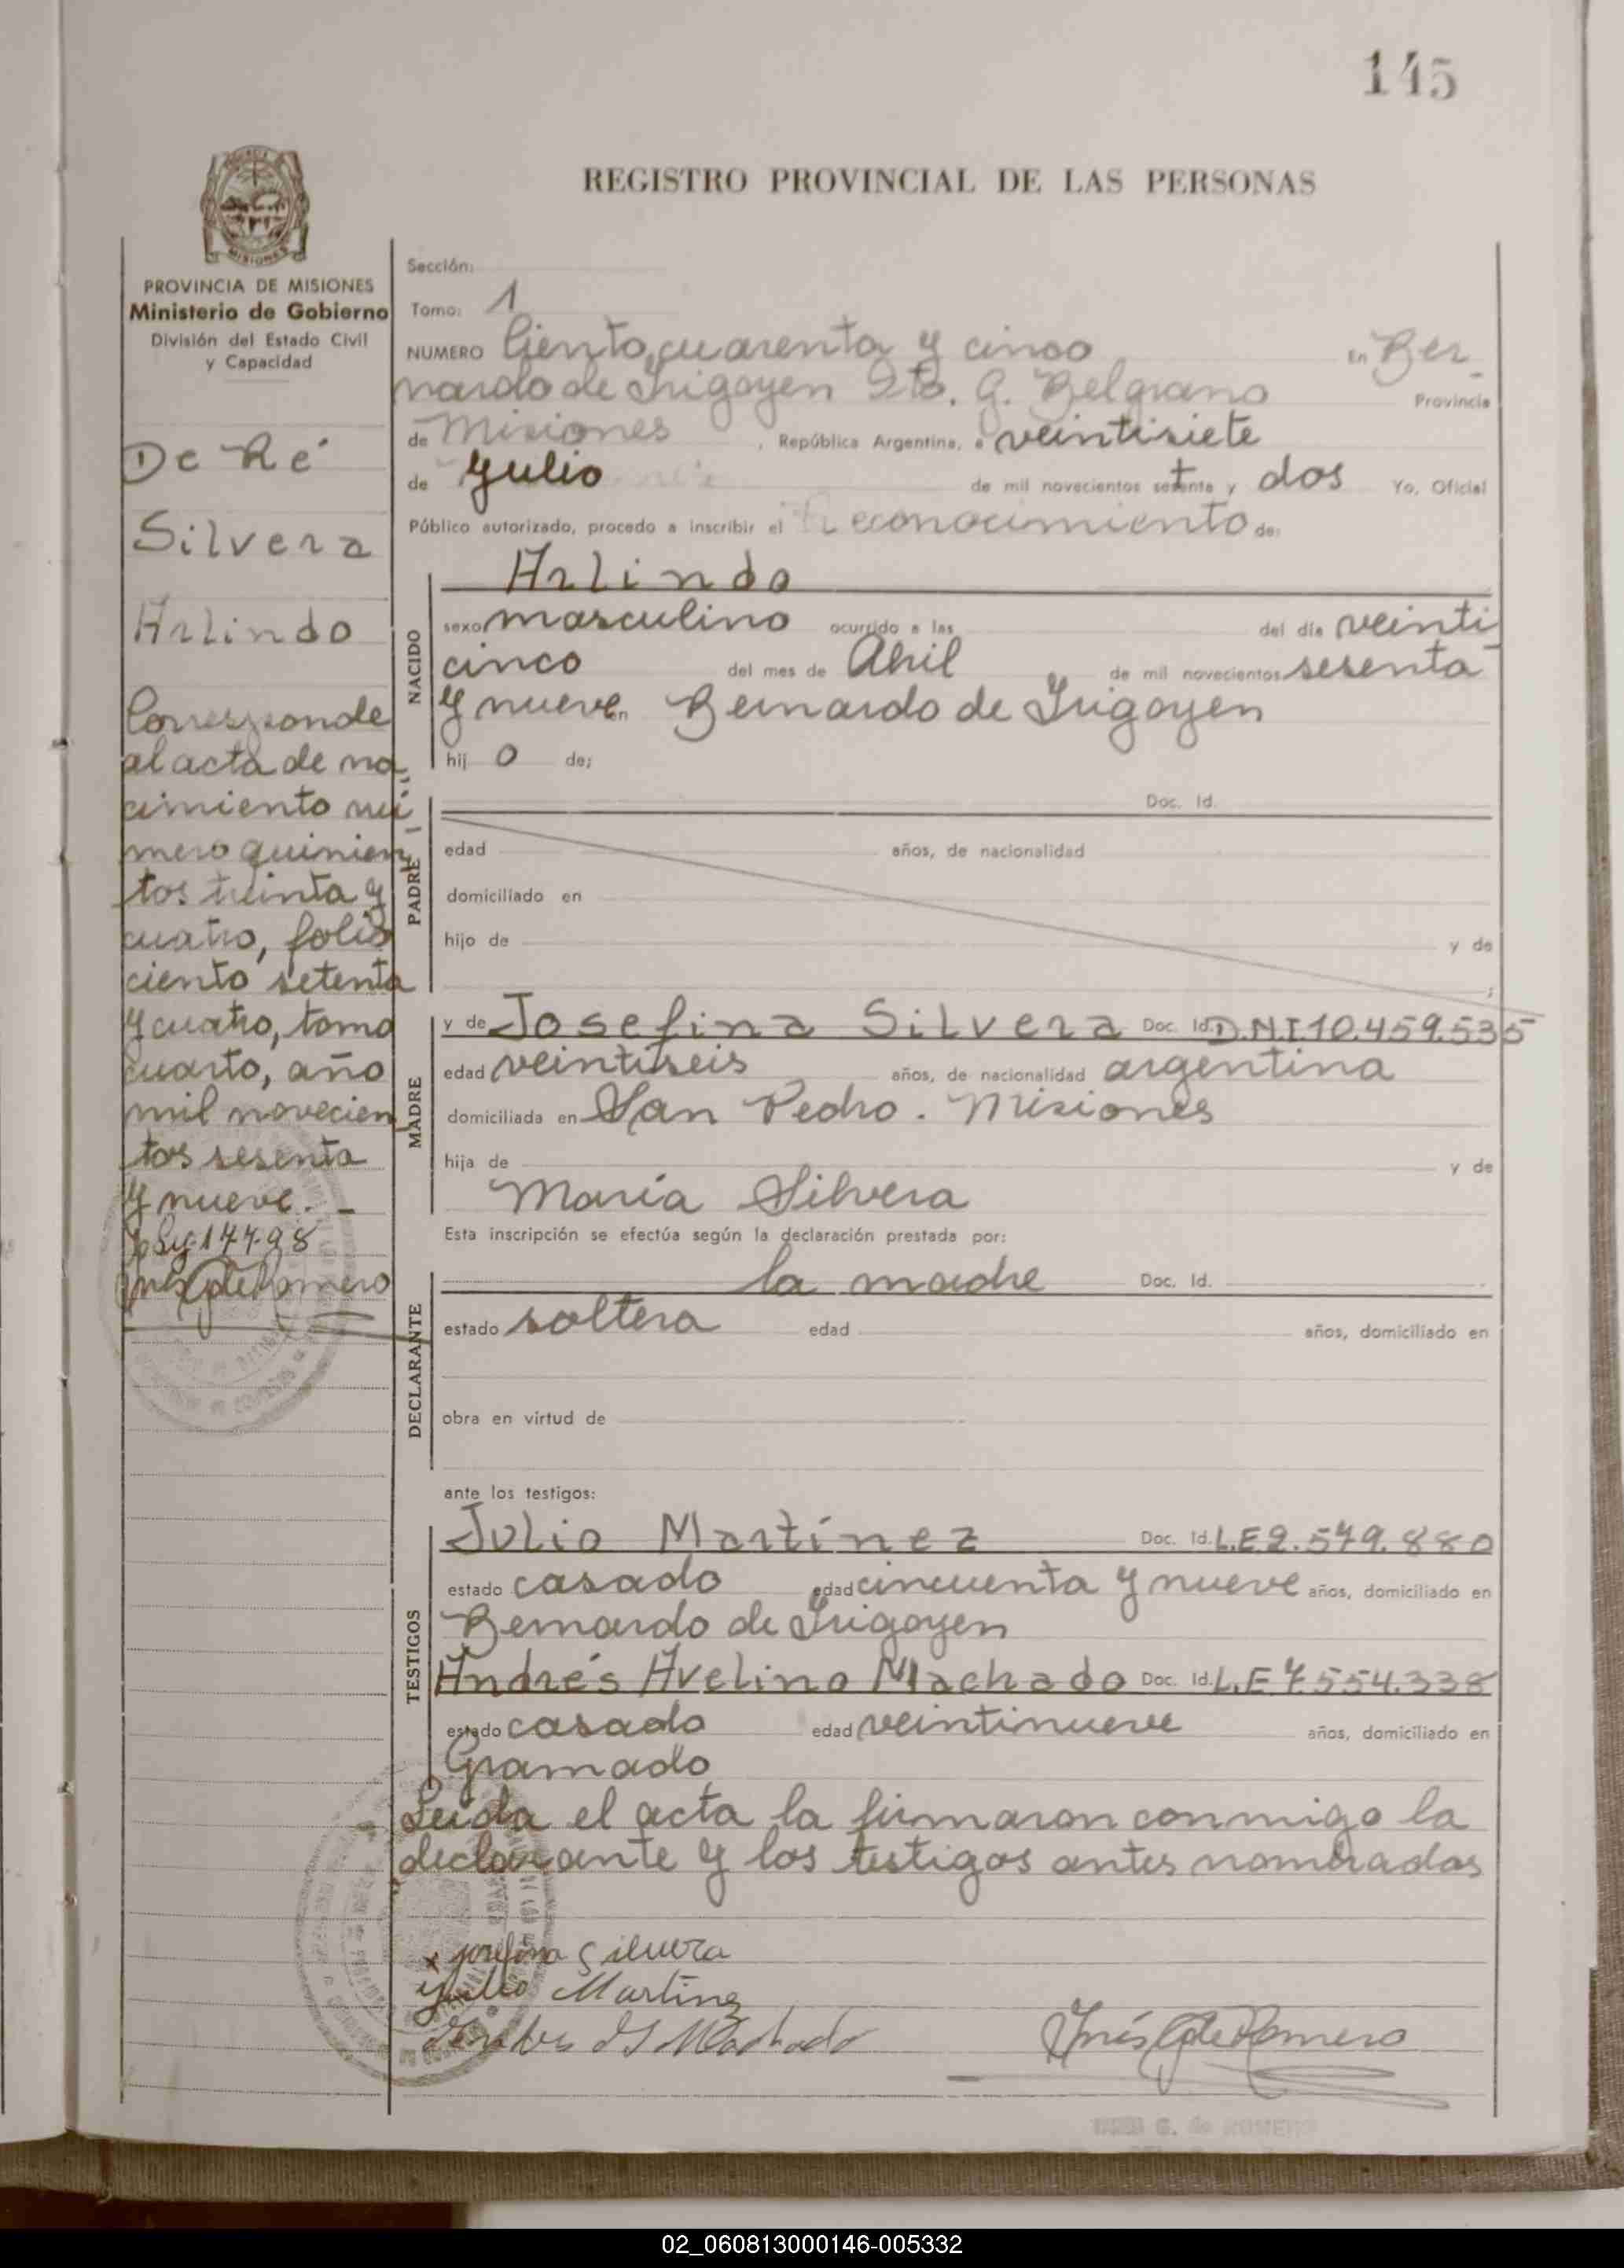 145
REGISTRO PROVINCIAL DE LAS PERSONAS
PROVINCIA DE MISIONES
Ministerio de Gobierno
División del Estado Civil
y Capacidad
De Ré
Silvera
Arlindo
Corresponde
al acta de na
cimiento nú
mero quinien
tos treinta y
cuatro, folio
ciento setenta
y cuatro, tomo
cuarto, año
mil novecien
tos sesenta
y nueve. –
Inés G de Romero
Sección:
Tomo: 1
NUMERO Ciento cuarenta y cinco en Ber-
nardo de Irigoyen Dto. G. Belgrano Provincia
de Misiones, República Argentina, a veintisiete
de Julio de mil novecientos setenta y dos Yo, Oficial
Público autorizado, procedo a inscribir el Reconocimiento de:
NACIDO
Arlindo
sexo masculino ocurrido a las del día veinti
cinco del mes de Abril de mil novecientos sesenta
y nueve en Bernardo de Irigoyen
hij o de:
PADRE
Doc. Id.
edad años, de nacionalidad
domiciliado en
hijo de y de
;
MADRE
y de Josefina Silvera Doc. Id. D.N.I. 10.459.535
edad veintiseis años, de nacionalidad argentina
domiciliada en San Pedro. Misiones
hija de y de
María Silvera
Esta inscripción se efectúa según la declaración prestada por:
DECLARANTE
la madre Doc. Id.
estado soltera edad años, domiciliado en
obra en virtud de
ante los testigos:
TESTIGOS
Julio Martínez Doc. Id. L.E 2.579.880
estado casado edad cincuenta y nueve años, domiciliado en
Bernardo de Irigoyen
Andrés Avelino Machado Doc. Id. L.E 7.554.338
estado casado edad veintinueve años, domiciliado en
Gramado
Leída el acta la firmaron conmigo la
declarante y los testigos antes nombrados
x josefina Silvera
Julio Martinez
Machado
Inés G de Romero
G. de ROMERO
02_060813000146-005332